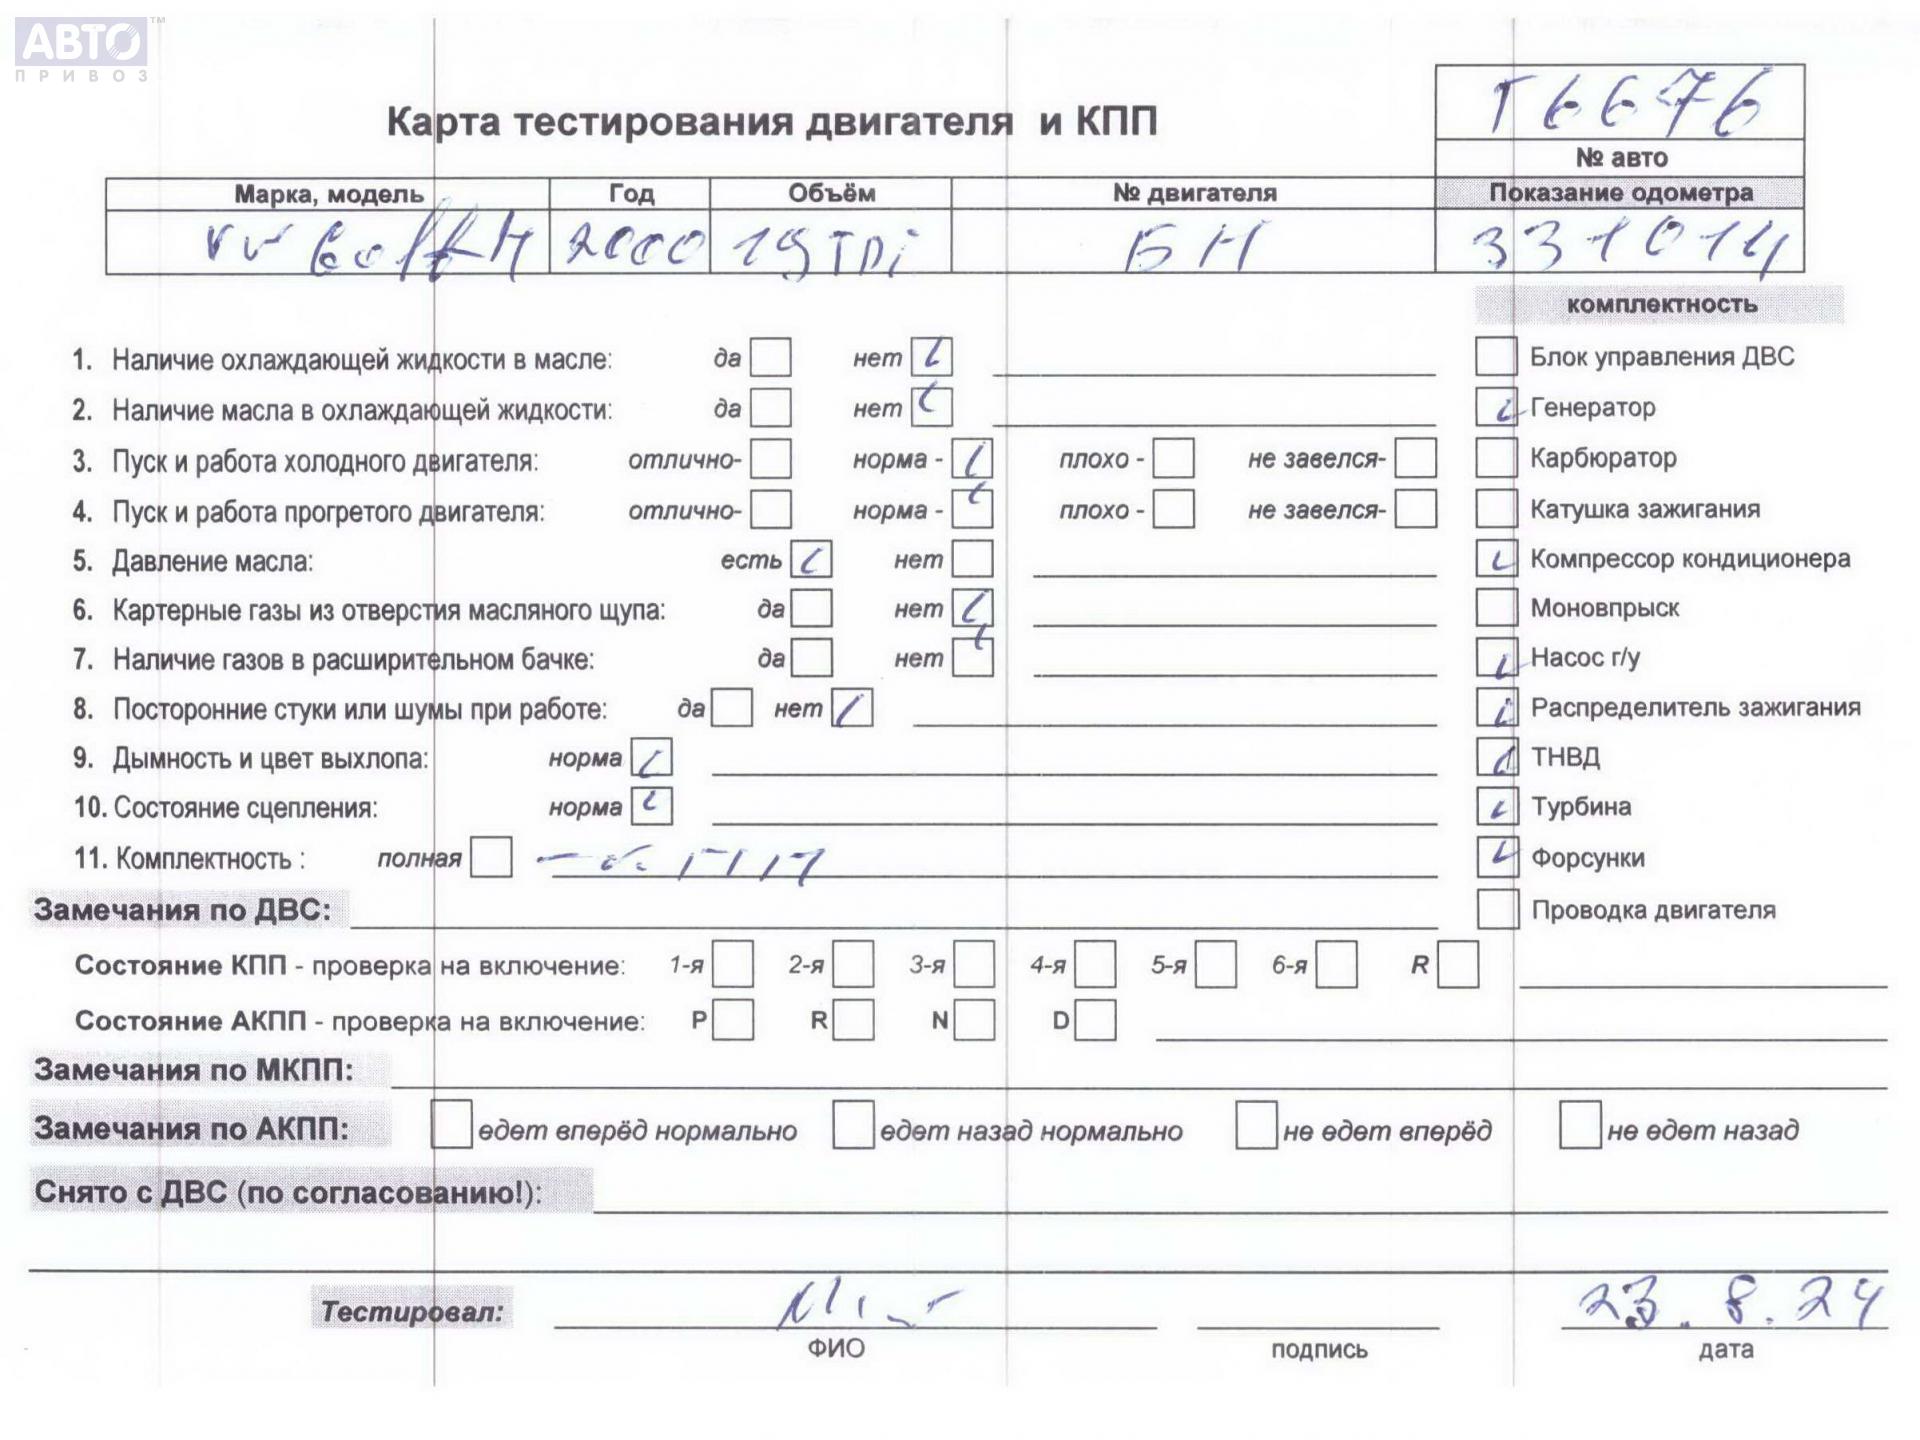 АВТО™
ПРИВОЗ
Т6676
Карта тестирования двигателя и КПП
№ авто
Марка, модель Год Объём № двигателя Показание одометра
VW Golf 4 2000 1,9 TDi БН 331014
комплектность
1. Наличие охлаждающей жидкости в масле: да нет Блок управления ДВС
2. Наличие масла в охлаждающей жидкости: да нет Генератор
3. Пуск и работа холодного двигателя: отлично- норма - плохо - не завелся- Карбюратор
4. Пуск и работа прогретого двигателя: отлично- норма - плохо - не завелся- Катушка зажигания
5. Давление масла: есть нет Компрессор кондиционера
6. Картерные газы из отверстия масляного щупа: да нет Моновпрыск
7. Наличие газов в расширительном бачке: да нет Насос г/у
8. Посторонние стуки или шумы при работе: да нет Распределитель зажигания
9. Дымность и цвет выхлопа: норма ТНВД
10. Состояние сцепления: норма Турбина
11. Комплектность : полная Форсунки
Замечания по ДВС: Проводка двигателя
Состояние КПП - проверка на включение: 1-я 2-я 3-я 4-я 5-я 6-я R
Состояние АКПП - проверка на включение: P R N D
Замечания по МКПП:
Замечания по АКПП: едет вперёд нормально едет назад нормально не едет вперёд не едет назад
Снято с ДВС (по согласованию!):
Тестировал: 23.8.24
ФИО подпись дата